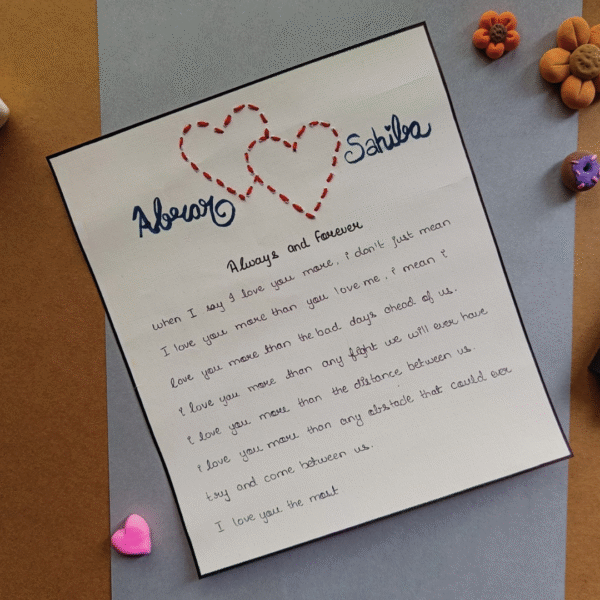 Abrar
Sahiba
Always and Forever
when I say I love you more, i don't just mean
I love you more than you love me, i mean i
love you more than the bad days ahead of us.
i love you more than any fight we will ever have
i love you more than the distance between us.
i love you more than any obstacle that could ever
try and come between us.
I love you the most